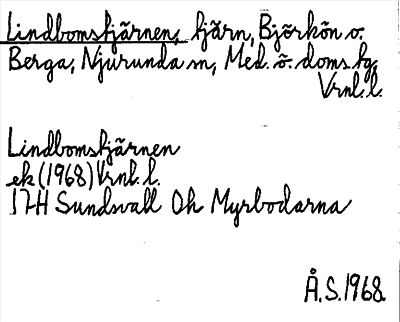 Lindbomstjärnen, tjärn, Björkön o.
Berga, Njurunda sn, Med. ö. doms.tg,
Vrnl.l.
Lindbomstjärnen
ek (1968) Vrnl. l.
17H Sundsvall 0h Myrbodarna
Å.S.1968.